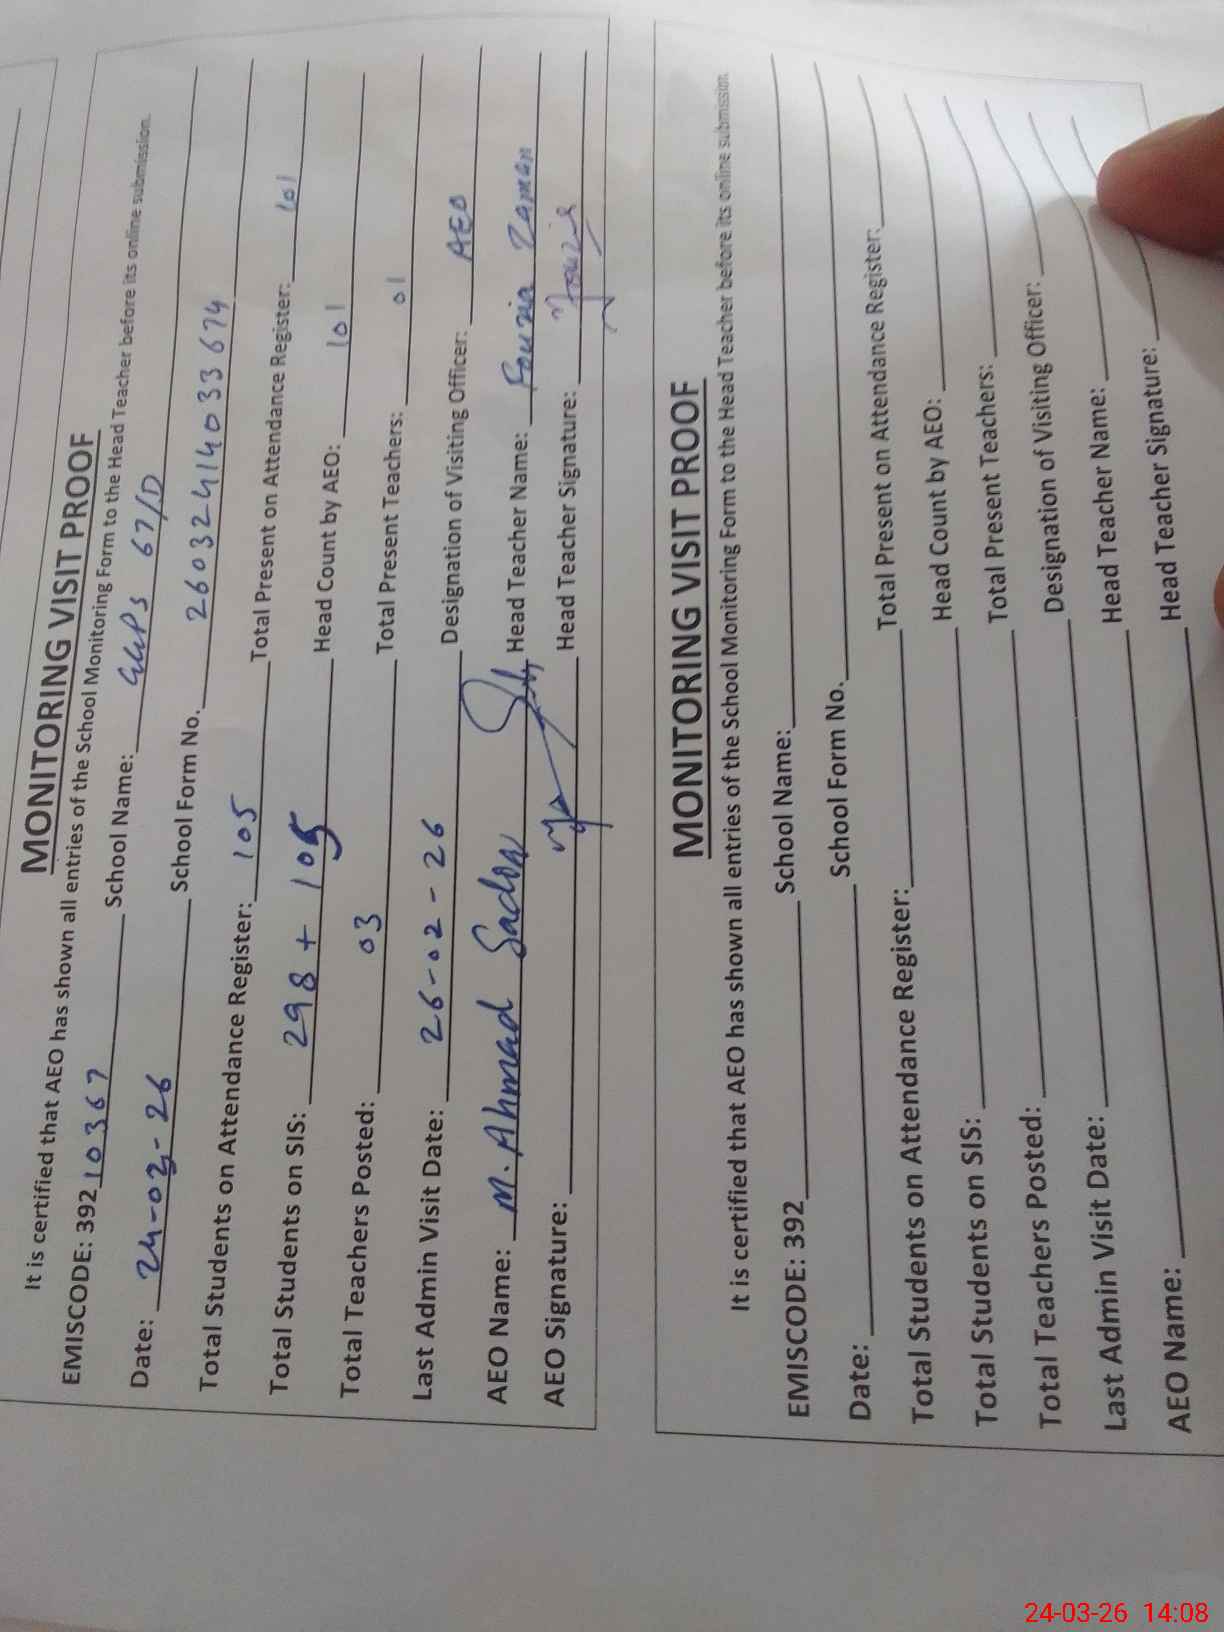 MONITORING VISIT PROOF
It is certified that AEO has shown all entries of the School Monitoring Form to the Head Teacher before its online submission.
EMISCODE: 392 10367 School Name: GGPS 67/D
Date: 24-03-26 School Form No. 26032414033674
Total Students on Attendance Register: 105 Total Present on Attendance Register: 101
Total Students on SIS: 298 + 105 Head Count by AEO: 101
Total Teachers Posted: 03 Total Present Teachers: 01
Last Admin Visit Date: 26-02-26 Designation of Visiting Officer: AEO
AEO Name: M. Ahmad Head Teacher Name: Fouzia Zaman
AEO Signature: Head Teacher Signature: Fouzia
MONITORING VISIT PROOF
It is certified that AEO has shown all entries of the School Monitoring Form to the Head Teacher before its online submission.
EMISCODE: 392 School Name:
Date: School Form No.
Total Students on Attendance Register: Total Present on Attendance Register:
Total Students on SIS: Head Count by AEO:
Total Teachers Posted: Total Present Teachers:
Last Admin Visit Date: Designation of Visiting Officer:
AEO Name: Head Teacher Name:
Head Teacher Signature:
24-03-26 14:08